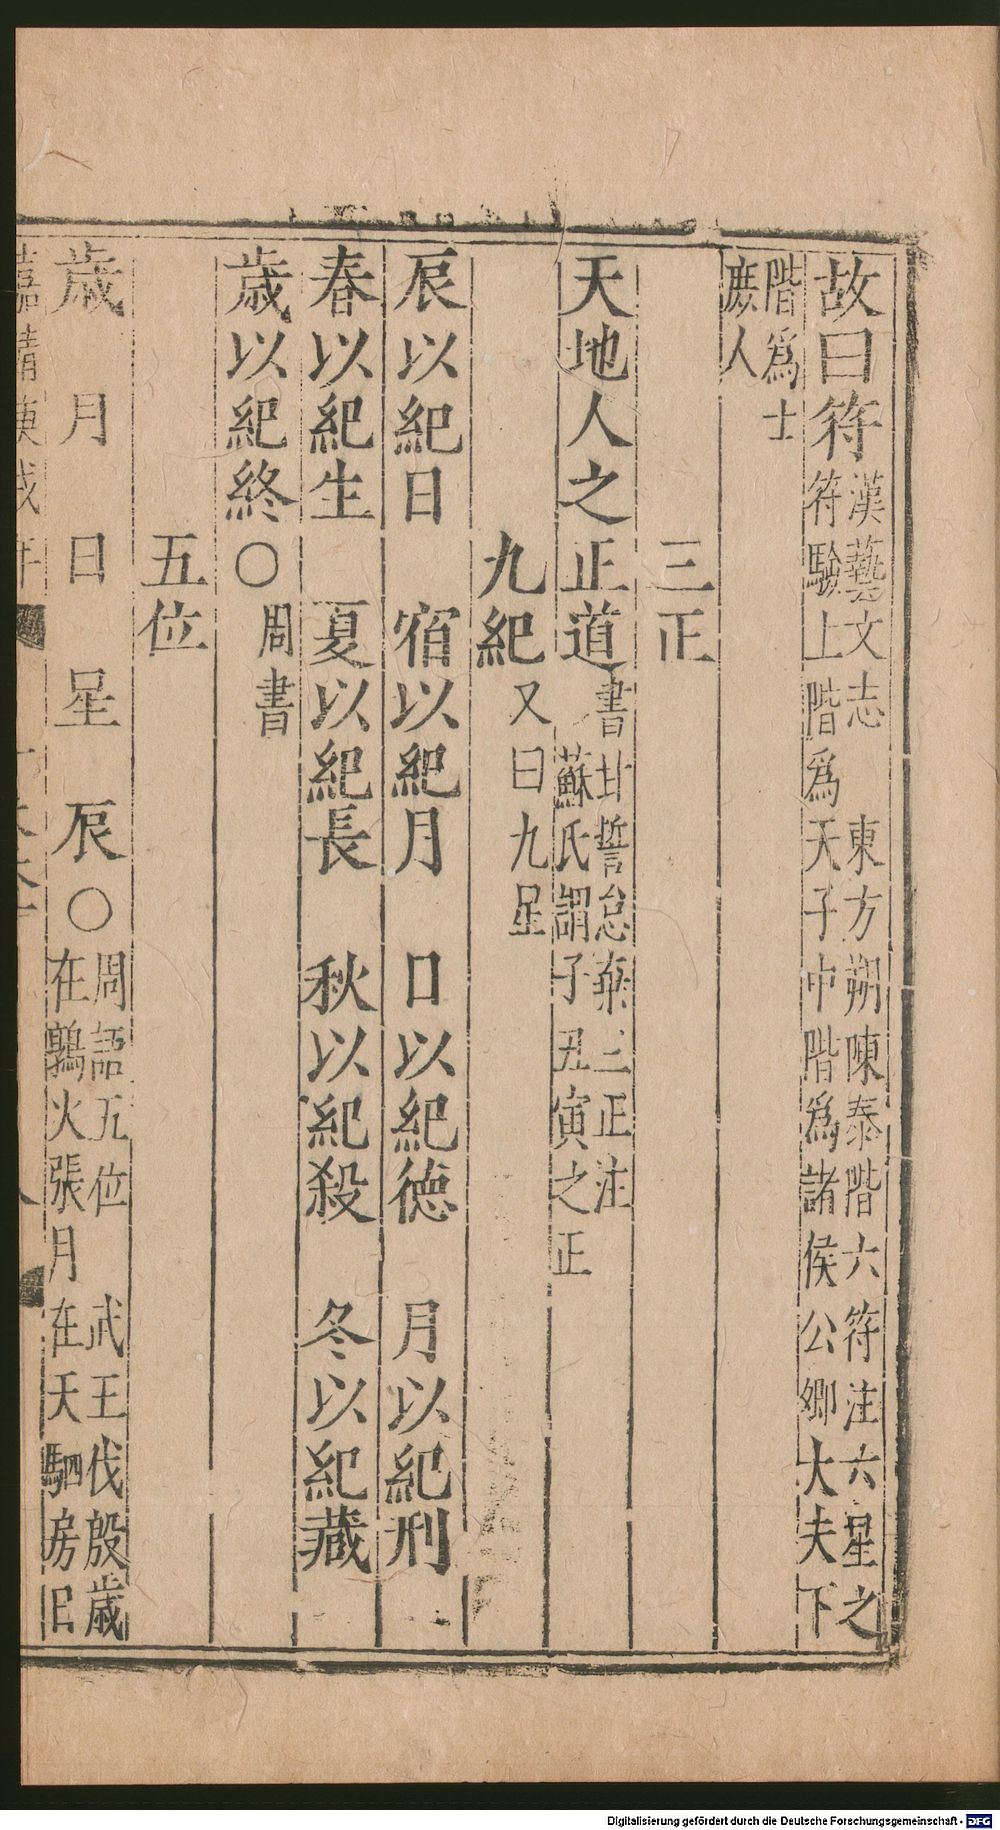 故曰符漢藝文志　東方朔陳泰階六符注六星之
符驗上階爲天子中階爲諸侯公卿大夫下
階爲士
庶人
三正
天地人之正道書甘誓怠棄三正注
蘇氏謂子丑寅之正
九紀又曰九星
辰以紀日　宿以紀月　日以紀德　月以紀刑
春以紀生　夏以紀長　秋以紀殺　冬以紀藏
歲以紀終○周書
五位
歲　月　日　星　辰○周語五位　武王伐殷歲
在鶉火張月在天駟房日
嘉靖庚戌年
Digitalisierung gefördert durch die Deutsche Forschungsgemeinschaft - DFG